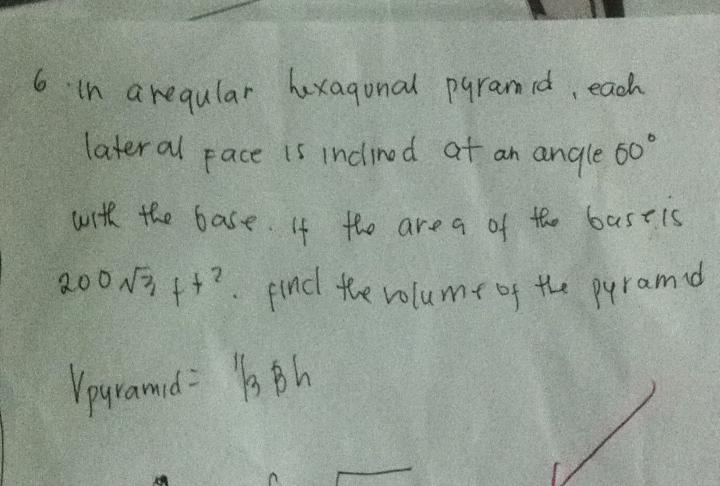 6 in a regular hexagonal pyramid, each
lateral face is inclined at an angle 60°
with the base. if the area of the base is
200√3 ft². find the volume of the pyramid
Vpyramid = 1/3 Bh